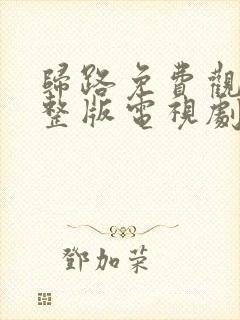 歸路免費觀
整版電視劇
鄧加荣